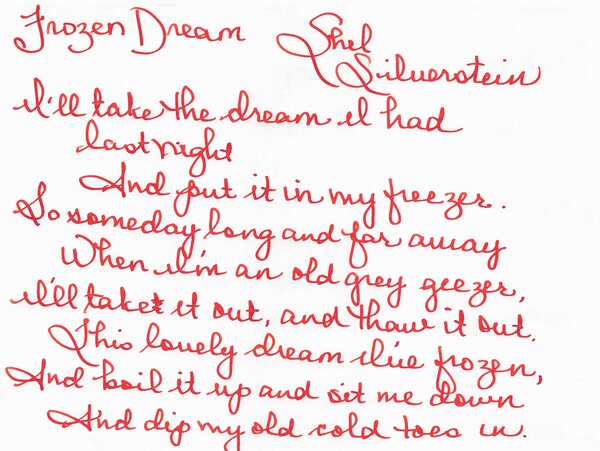 Frozen Dream
Shel
Silverstein
I'll take the dream I had
last night
And put it in my freezer.
So someday long and far away
When I'm an old grey geezer,
I'll take it out, and thaw it out.
This lovely dream I've frozen,
And boil it up and sit me down
And dip my old cold toes in.